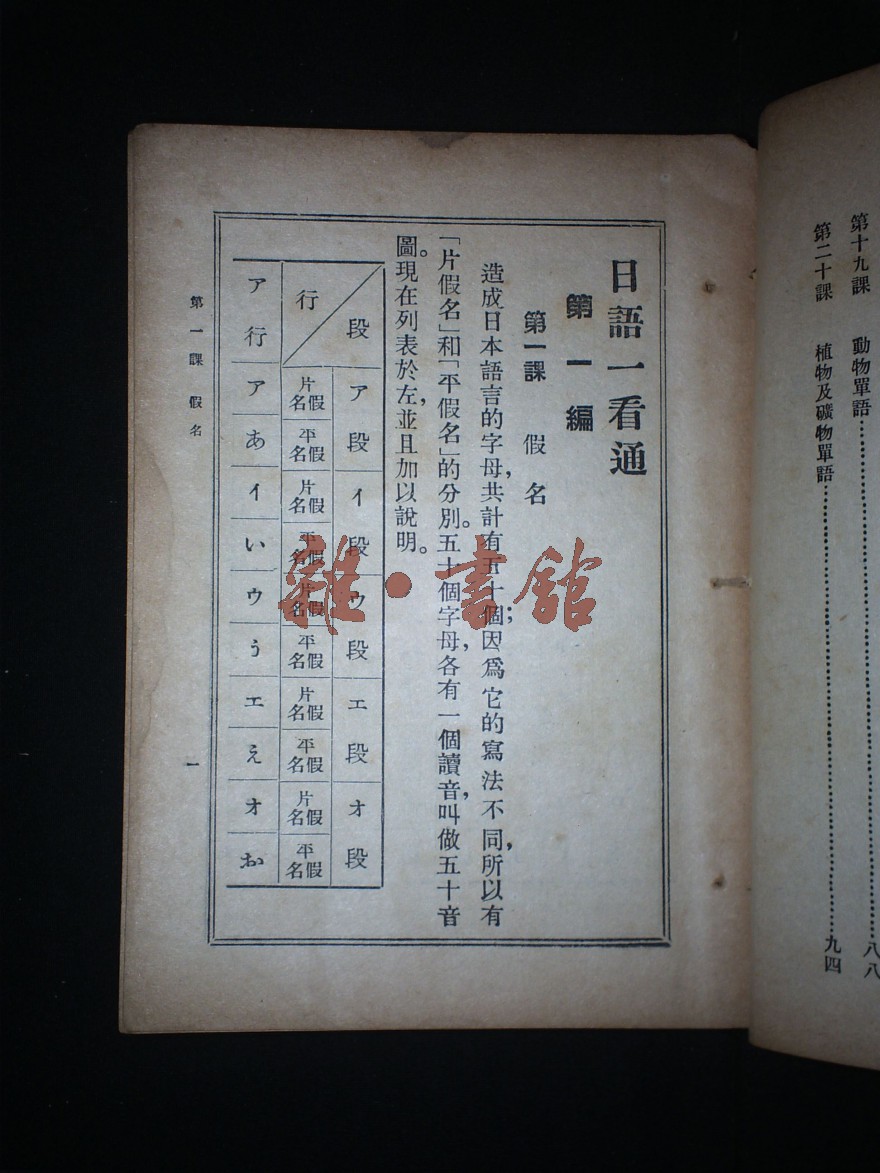 第十九課 動物單語……八八
第二十課 植物及礦物單語……九四
日語一看通
第一編
第一課 假名
造成日本語言的字母，共計有五十個；因爲它的寫法不同，所以有
「片假名」和「平假名」的分別。五十個字母，各有一個讀音，叫做五十音
圖。現在列表於左，並且加以說明。
段 ア段 イ段 ウ段 エ段 オ段
行 片假名 平假名 片假名 平假名 片假名 平假名 片假名 平假名 片假名 平假名
ア行 ア あ イ い ウ う エ え オ お
第一課 假名 一
雜·書館